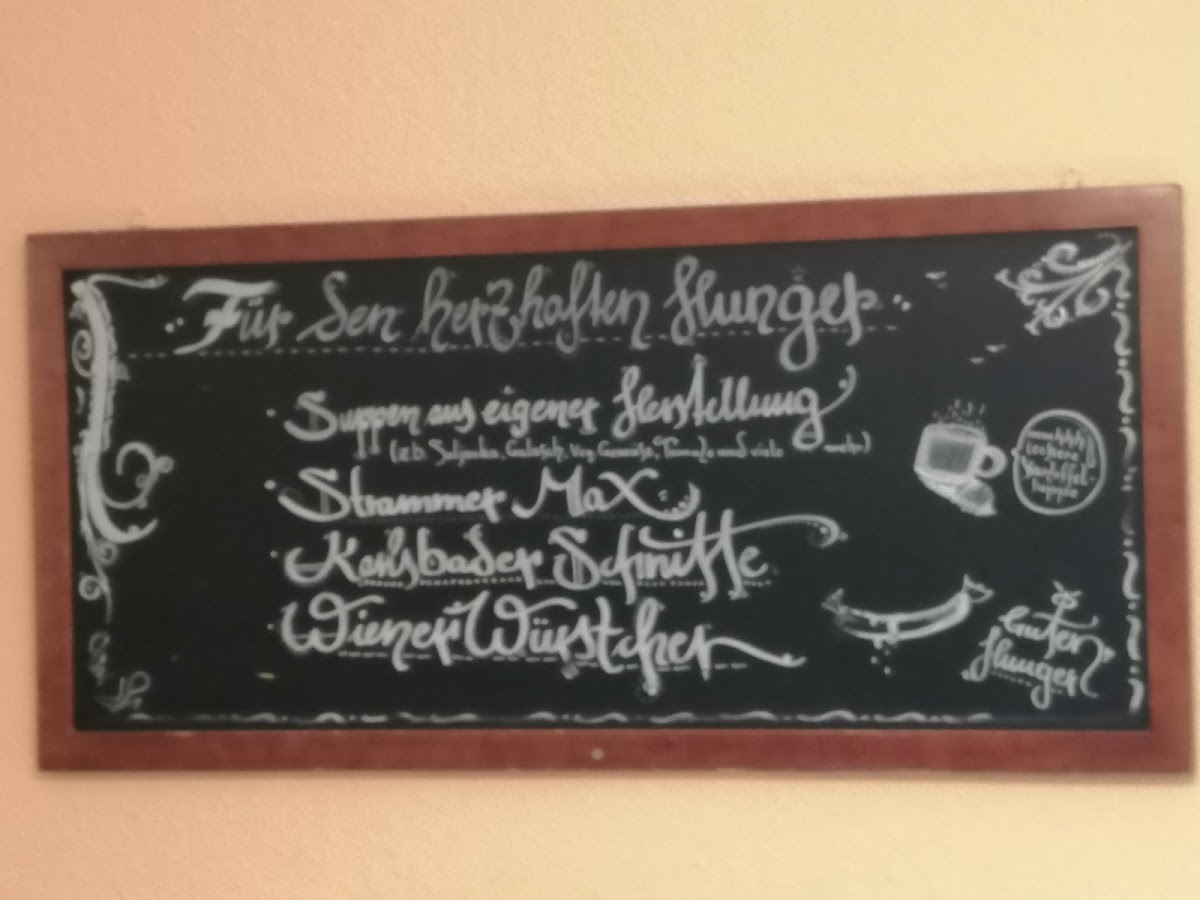 Für den herzhaften Hunger
Suppen aus eigener Herstellung
(z.b. Soljanka, Gulasch, Veg. Gemüse, Tomate und viele mehr)
Strammer Max
Karlsbader Schnitte
Wiener Würstchen
leckere
Kartoffel-
suppe
Guten
Hunger